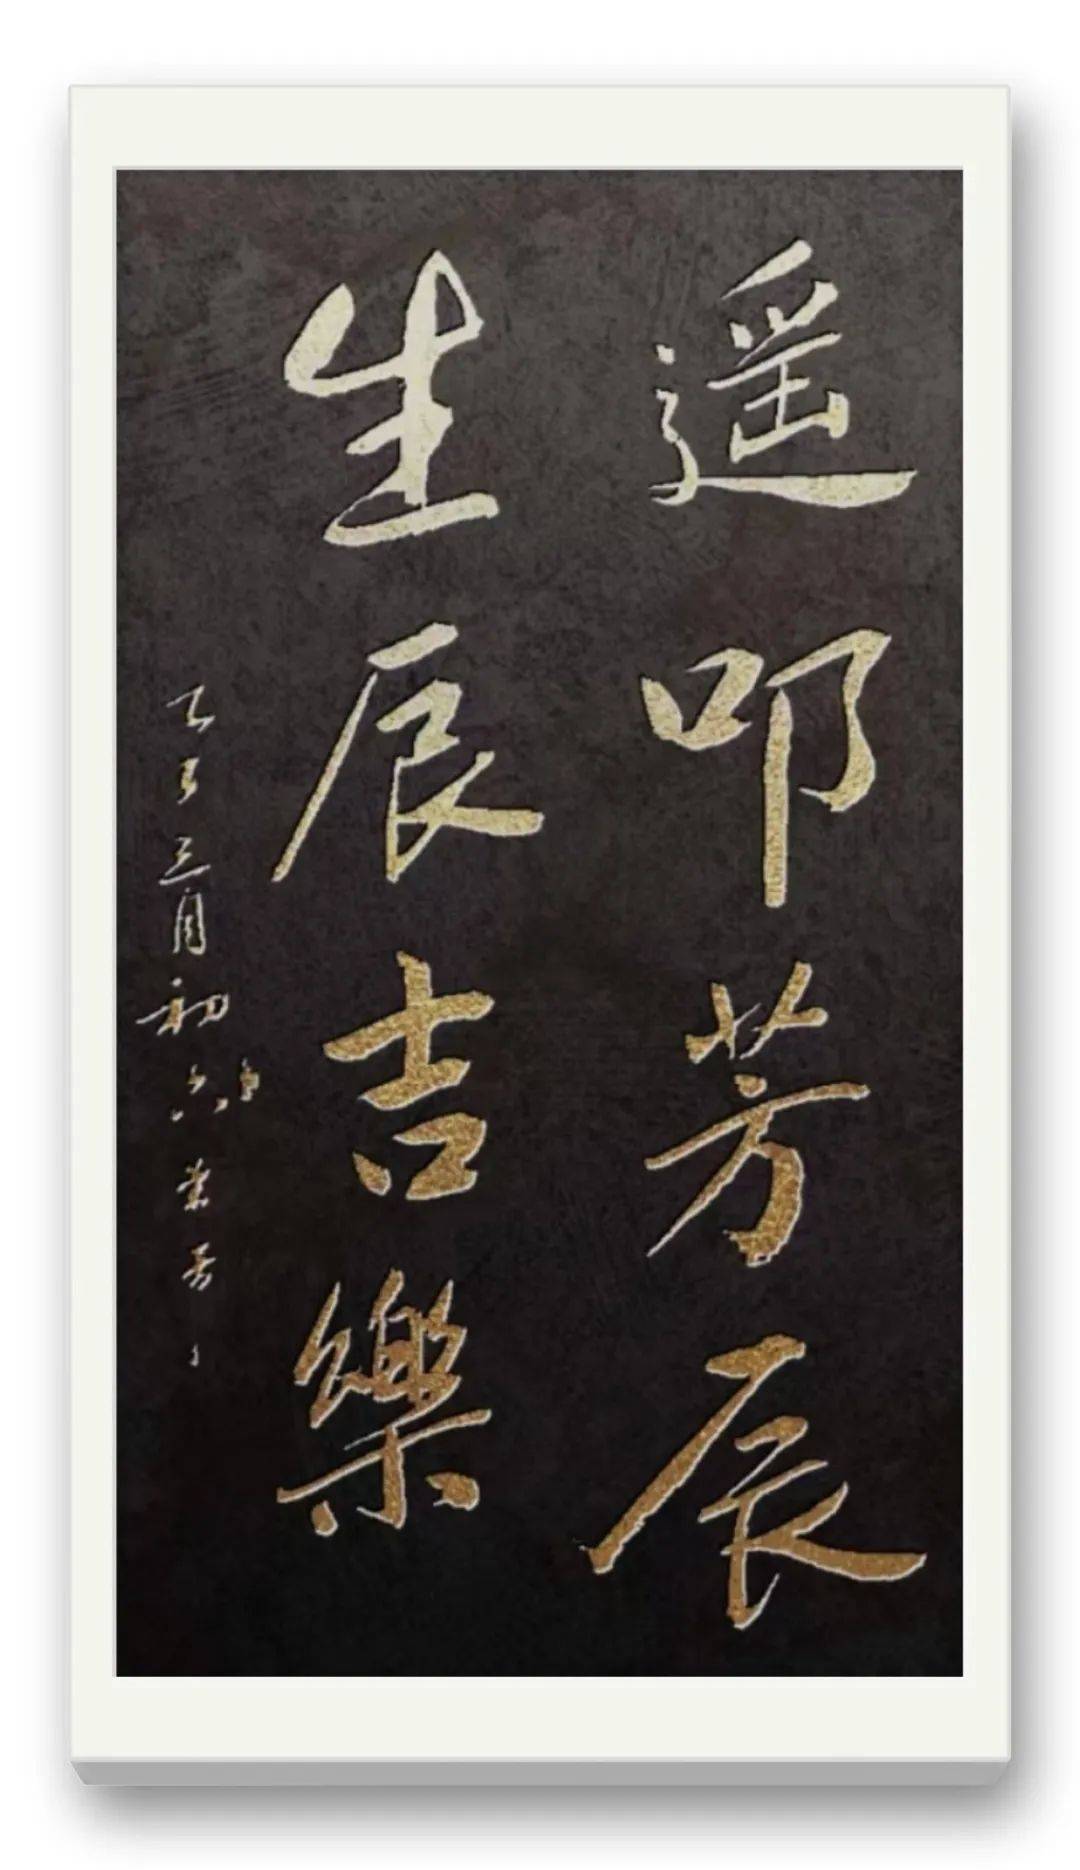 遥叩芳辰
生辰吉樂
乙巳三月初六